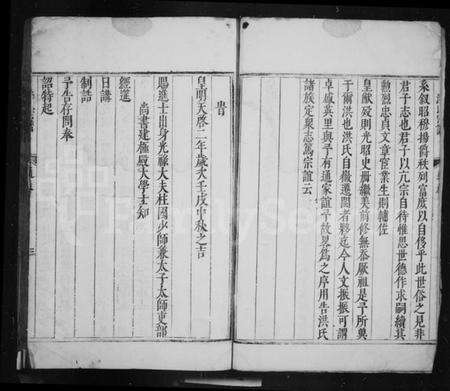 系叙昭穆揚爵秩列富庶以自侈乎此世俗之見非
君子志也君子以亢宗自待惟思世德作求嗣續其
勲烈忠貞文章宦業生則輔佐
皇猷歿則光昭史冊繼美前修無忝厥祖是予所與
于爾洪也洪氏自徽遷閩者夥迄今人文振振可謂
卓犖英里與予有通家誼予故見爲之序用告洪氏
諸族定衆志篤宗誼云
旹
皇明天啓二年歲次壬戌中秋之吉
賜進士出身光祿大夫柱國少師兼太子太師吏部
尚書建極殿大學士知
經筵
日講
制誥
予告存問奉
詔特起